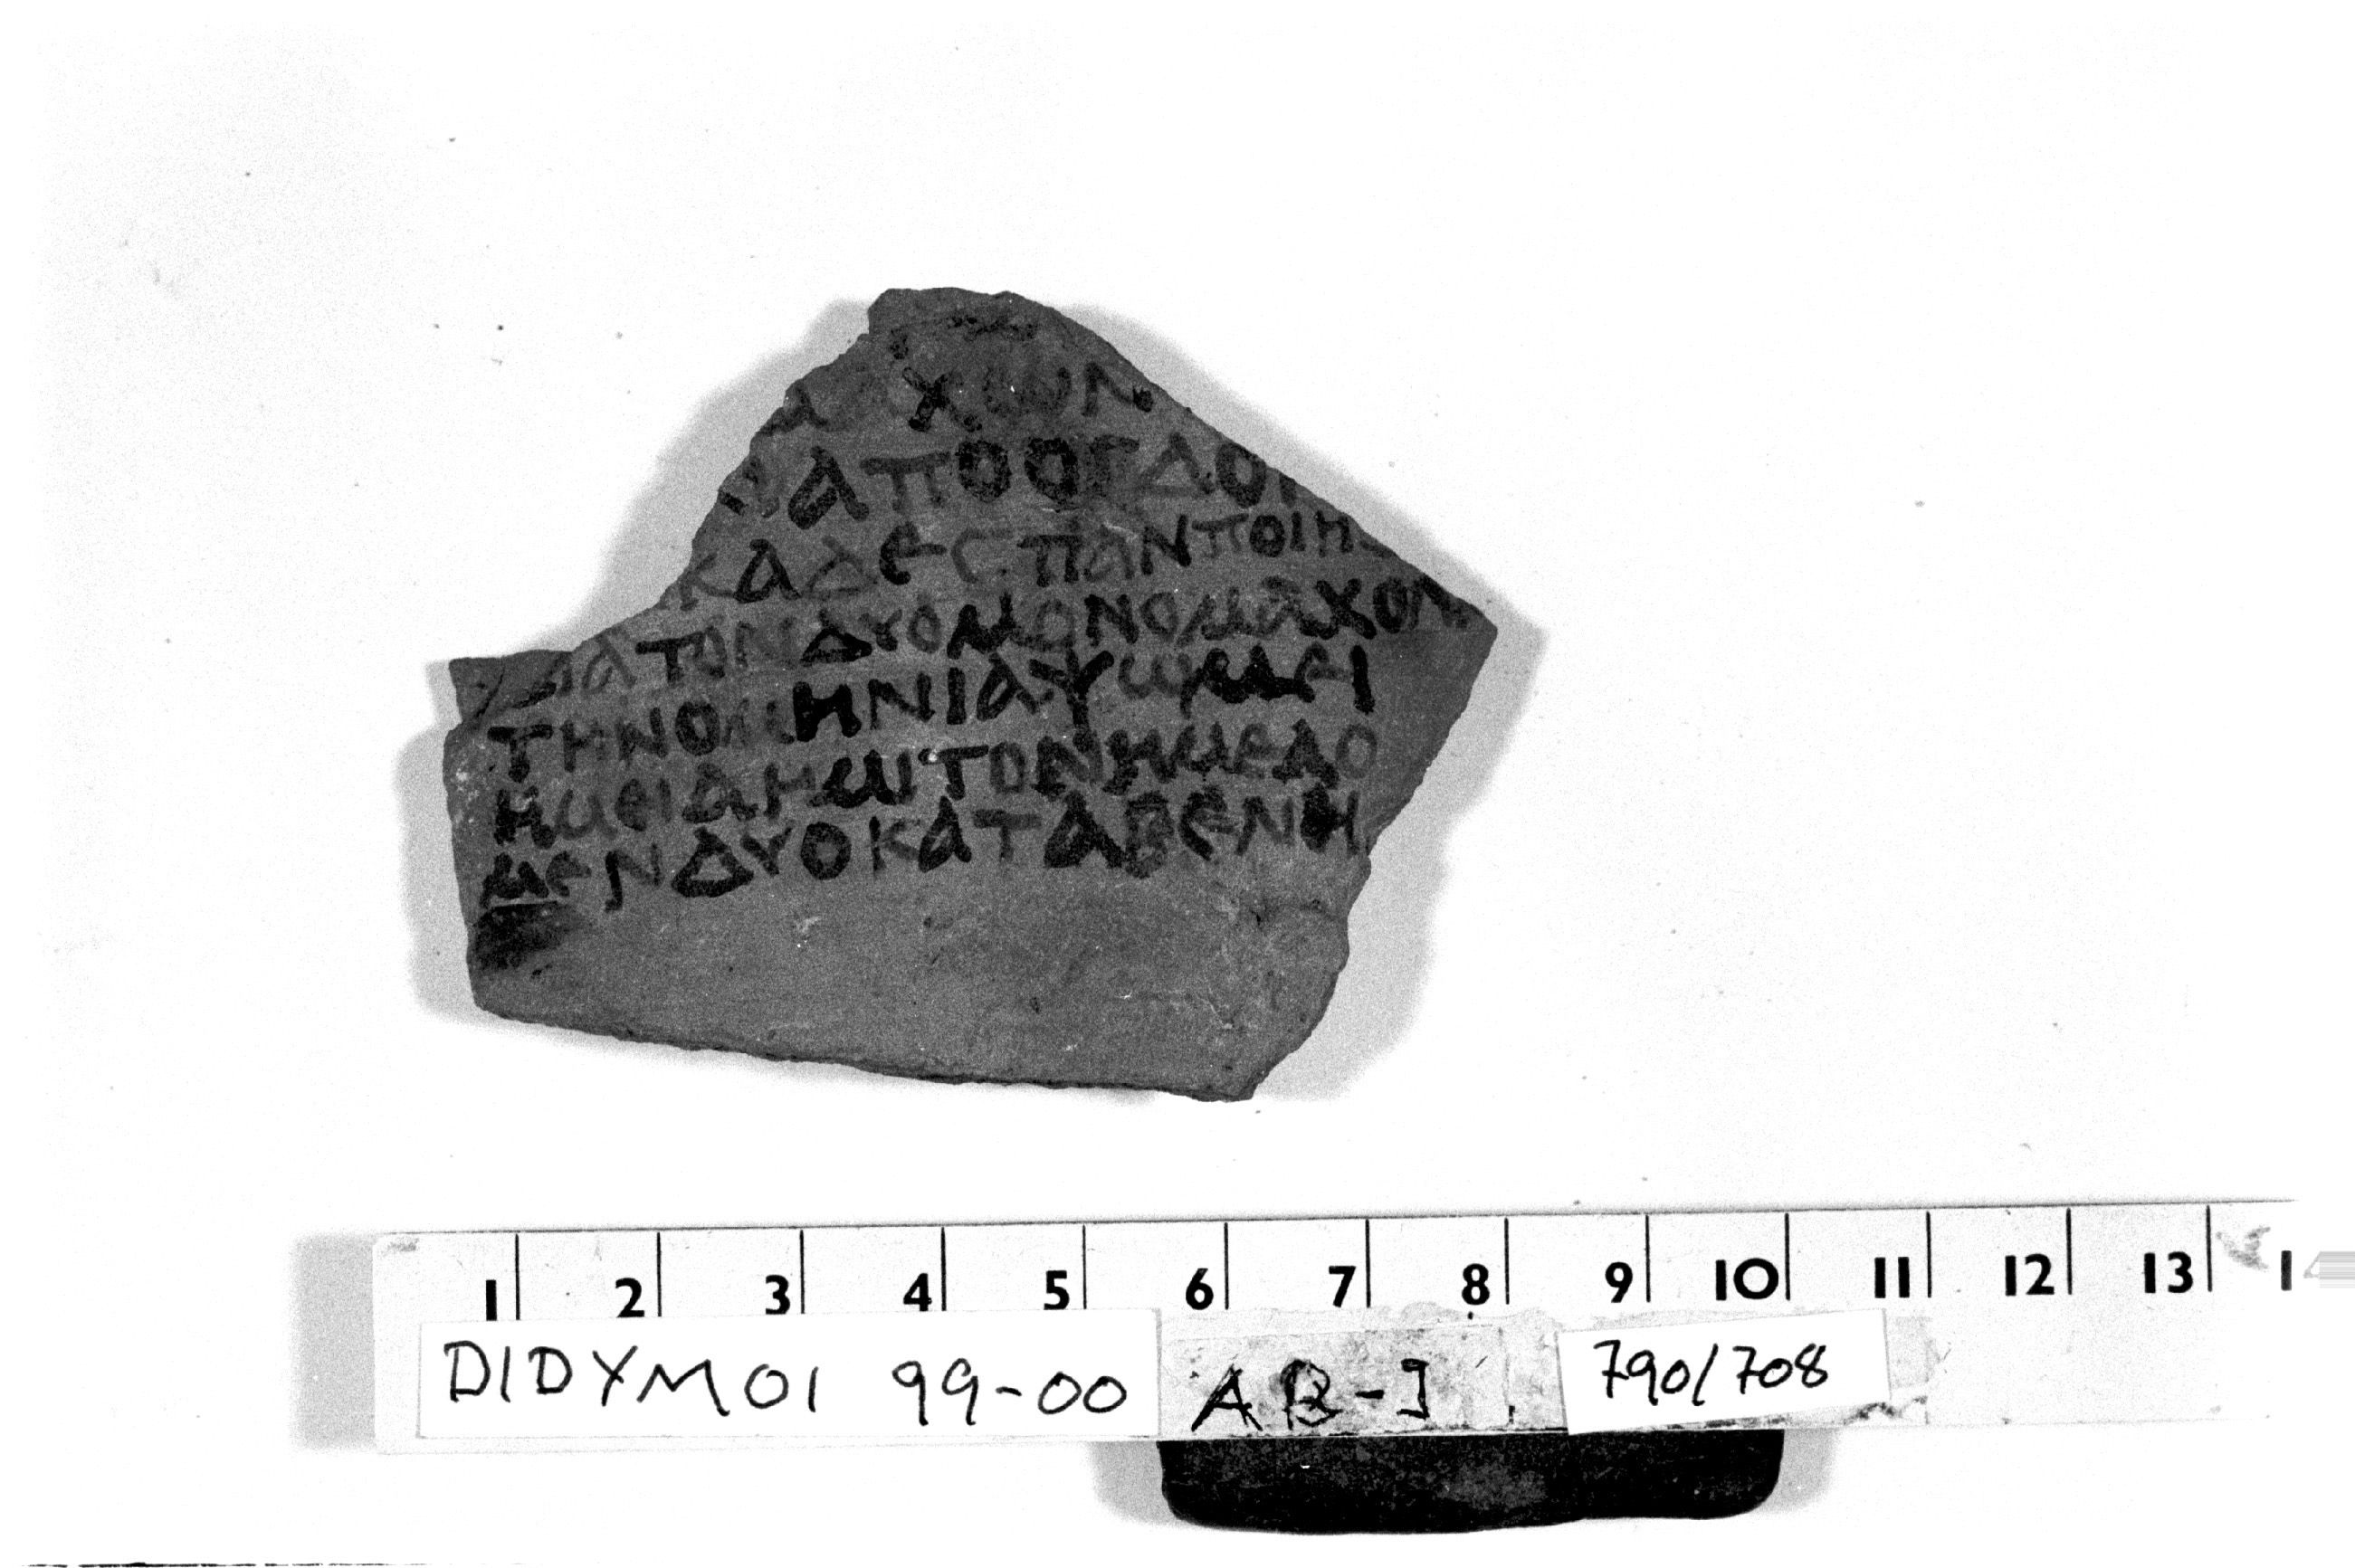 ΧΩΝ
ΑΠΟΟΓΔΟ
ΚΑΔΕСΠΑΝΠΟΙΗ
ΑΤΟΝΔΥΟΜΟΝΟΜΑΧΟΝ
ΤΗΝΟΜΗΝΙΑΨΩΜΕΙ
ΗΜΕΙΔΗΜΙΤΟΝΗΜΕΔΟ
ΜΕΝΔΥΟΚΑΤΑΒΕΝΗ
1 2 3 4 5 6 7 8 9 10 11 12 13 1
DIDYMOI 99-00 AB-J 790/708